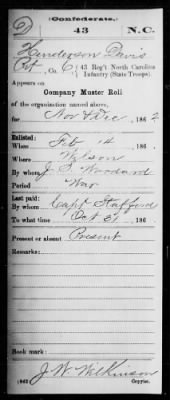 (Confederate.)
43 N.C.
Henderson Davis
Pvt, Co. C, 43 Reg't North Carolina
Infantry (State Troops).
Appears on
Company Muster Roll
of the organization named above,
for Nov & Dec, 186 2
Enlisted:
When Feb 14, 186
Where Wilson
By whom J. S. Woodard
Period War
Last paid:
By whom Capt Stafford
To what time Oct 31, 186
Present or absent Present
Remarks:
Book mark:
J. W. Wilkinson
(642) Copyist.